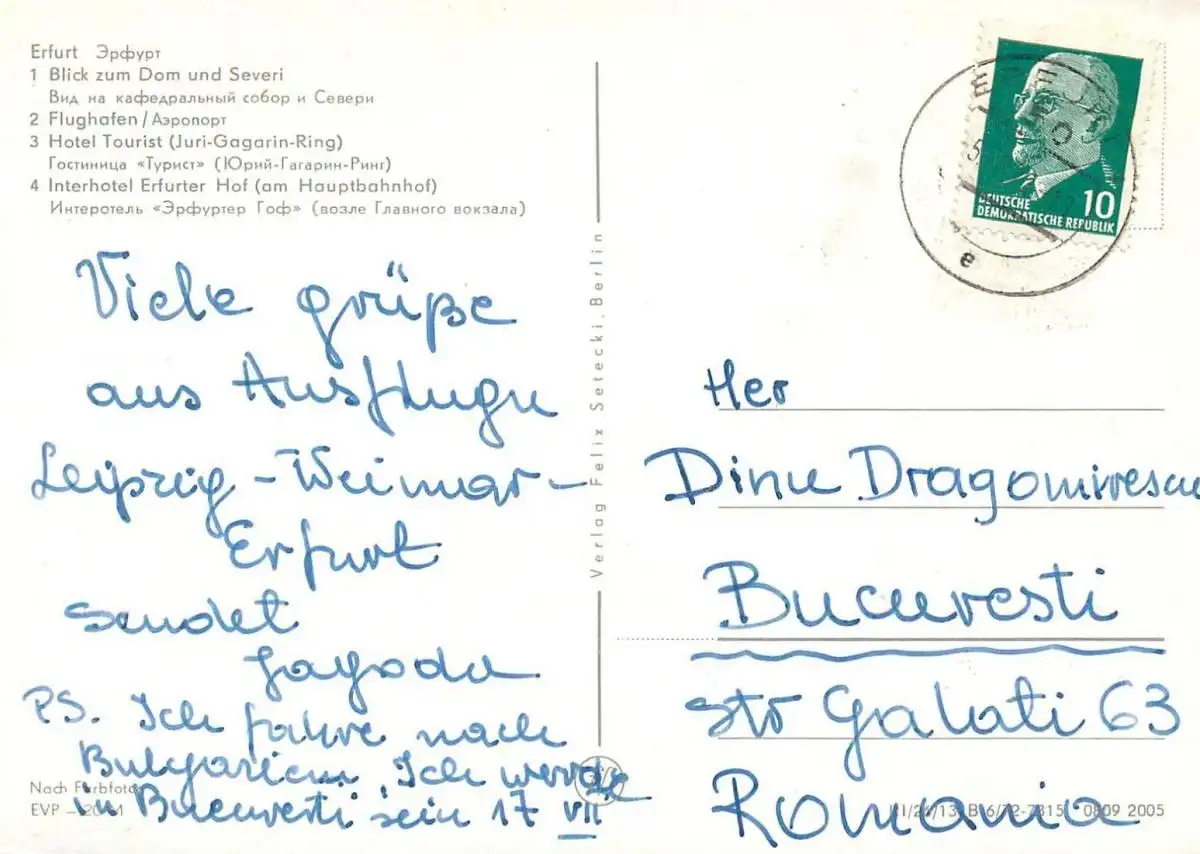 Erfurt Эрфурт
1 Blick zum Dom und Severi
Вид на кафедральный собор и Севери
2 Flughafen/Аэропорт
3 Hotel Tourist (Juri-Gagarin-Ring)
Гостиница «Турист» (Юрий-Гагарин-Ринг)
4 Interhotel Erfurter Hof (am Hauptbahnhof)
Интеротель «Эрфуртер Гоф» (возле Главного вокзала)
Viele grüße
aus Ausflugu
Leipzig - Weimar-
Erfurt
sendet
Jagoda
PS. Ich fahre nach
Bulgarien. Ich werde
in Bucuresti sein 17 VII
Nach Farbfotos
EVP
Verlag Felix Setecki, Berlin
10
DEUTSCHE
DEMOKRATISCHE REPUBLIK
e
Her
Dinu Dragomirescu
Bucuresti
str Galati 63
Romania
0809 2005